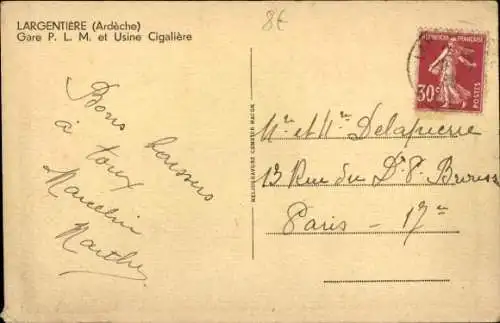 LARGENTIÈRE (Ardèche)
Gare P. L. M. et Usine Cigalière
8€
Bons baisers
à toux
Marcelin
Marthe
HELIOGRAVURE COMBIER MACON
REPUBLIQUE FRANÇAISE
30c
POSTES
Mr et Mme Delapierre
13 Rue du Dr P. Brousse
Paris - 17e